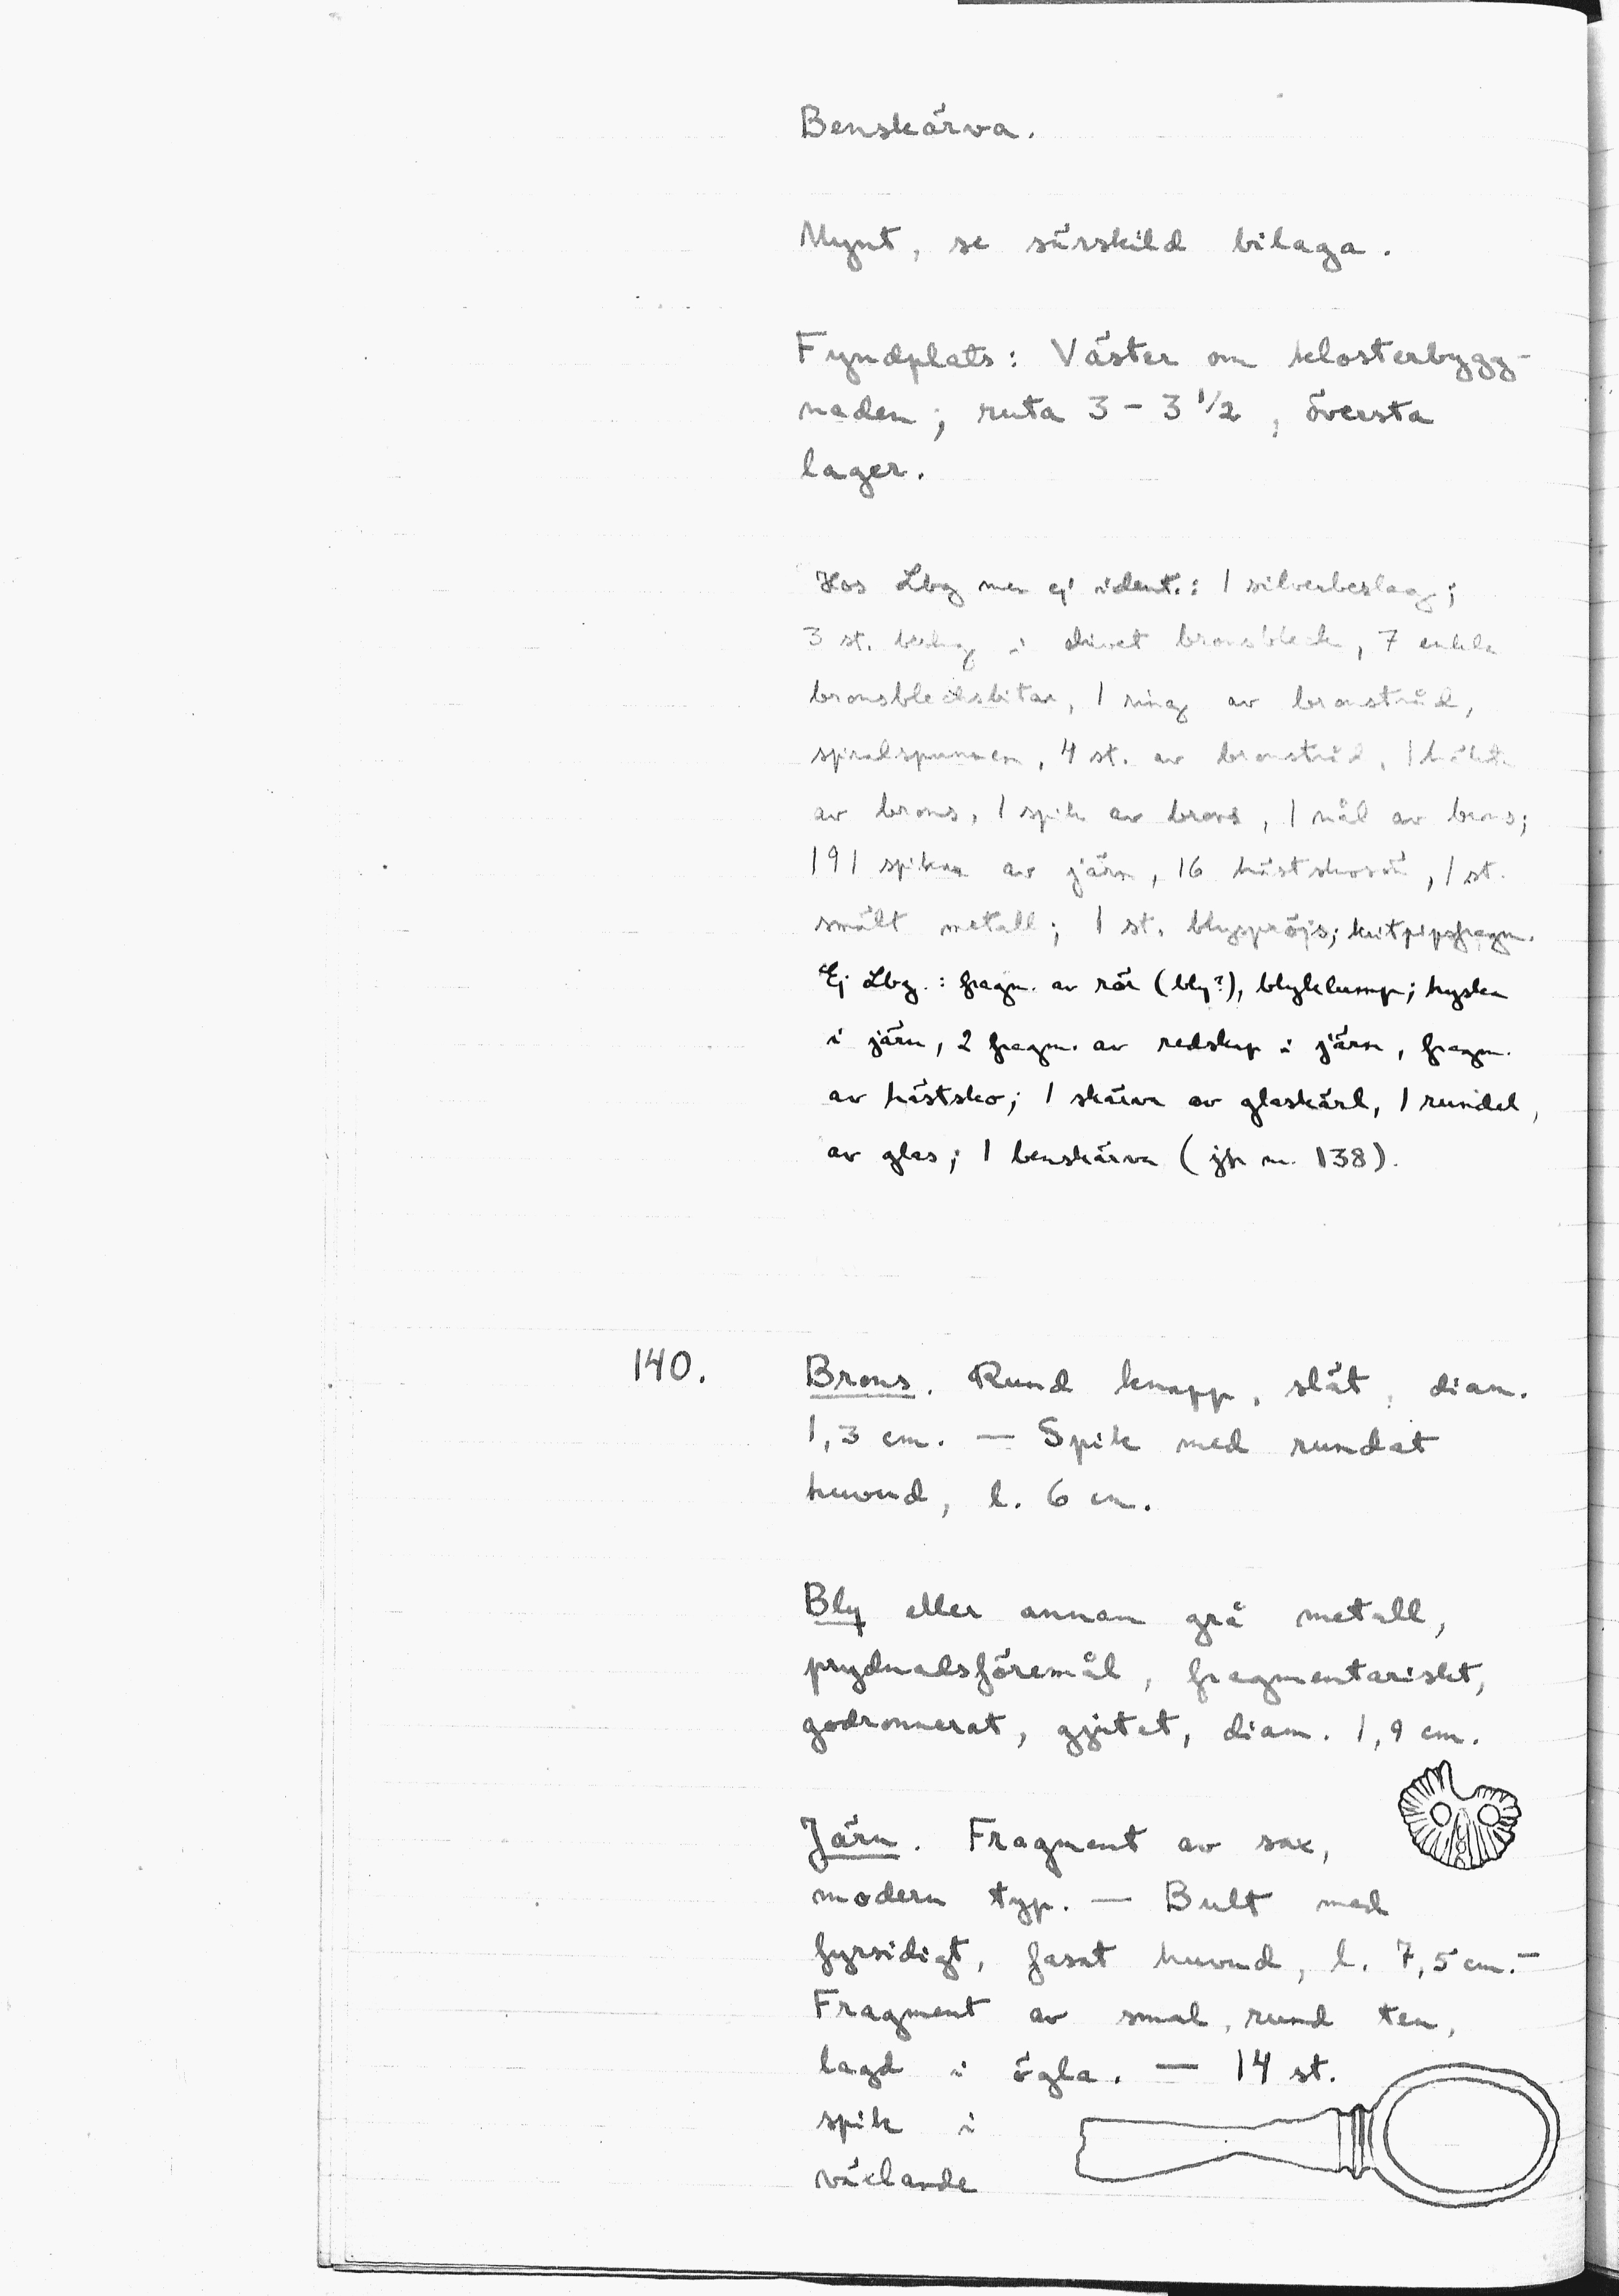 Benskärva.
Mynt, se särskild bilaga.
Fyndplats: Väster om klosterbygg-
naden; ruta 3 - 3 1/2, översta
lager.
Hos Lbg men ej ident.: 1 silverbeslag;
3 st. beslag i drivet bronsbleck, 7 enkla
bronsblecksbitar, 1 ring av bronstråd,
spiralspunnen, 4 st. av bronstråd, 1 häkta
av brons, 1 spik av brons, 1 nål av brons;
191 spikar av järn, 16 hästskosöm, 1 st.
smält metall; 1 st. blyspröjs; kritpipsfragm.
Ej Lbg.: fragm. av rör (bly?), blyklump; hyska
i järn, 2 fragm. av redskap i järn, fragm.
av hästsko; 1 skärva av glaskärl, 1 rundel,
av glas; 1 benskärva (jfr nr. 138).
140. Brons. Rund knapp, slät, diam.
1,3 cm. — Spik med rundat
huvud, l. 6 cm.
Bly eller annan grå metall,
prydnadsföremål, fragmentariskt,
godronnerat, gjutet, diam. 1,9 cm.
Järn. Fragment av sax,
modern typ. — Bult med
fyrsidigt, fasat huvud, l. 7,5 cm. —
Fragment av smal, rund ten,
lagd i ögla. — 14 st.
spik i
växlande